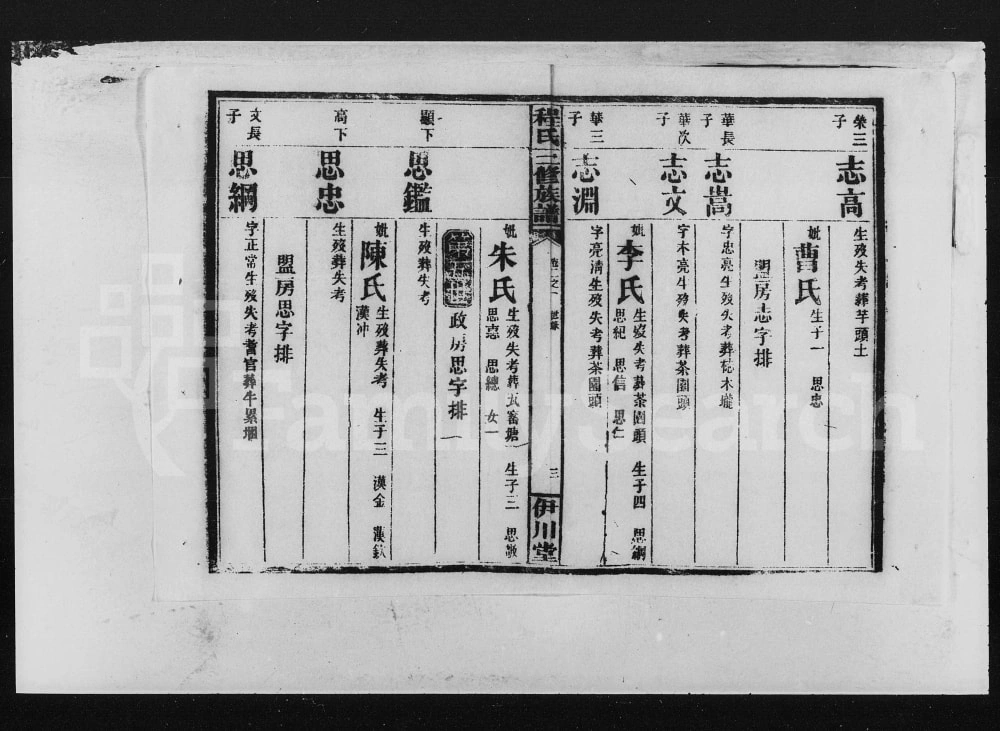 榮三子
志高
生歿失考葬芋頭土
妣曹氏生子一 思忠
盟房志字排
華長子
志嵩
字忠亮生歿失考葬枱木壠
華次子
志文
字木亮生歿失考葬茶園頭
妣李氏生歿失考葬茶園頭 生子四 思綱
思紀 思信 思仁
華三子
志淵
字亮清生歿失考葬茶園頭
程氏三修族譜
卷二之一 世錄
三
伊川堂
妣朱氏生歿失考葬瓦窰塘 生子三 思敬
思慤 思總 女一
政房思字排
顯下
思鑑
生歿葬失考
妣陳氏生歿葬失考 生子三 漢金 漢欽
漢冲
高下
思忠
生歿葬失考
盟房思字排
文長子
思綱
字正常生歿失考耆官葬牛累壠
FamilySearch